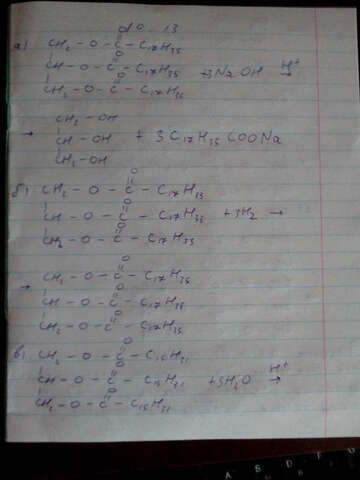 № 13
а) CH₂ - O - C - C₁₇H₃₅
O
CH - O - C - C₁₇H₃₅ + 3NaOH H⁺ →
O
CH₂ - O - C - C₁₇H₃₅
CH₂ - OH
→ CH - OH + 3 C₁₇H₃₅ COONa
CH₂ - OH
O
б) CH₂ - O - C - C₁₇H₃₅
O
CH - O - C - C₁₇H₃₅ + 3H₂ →
O
CH₂ - O - C - C₁₇H₃₃
O
→ CH₂ - O - C - C₁₇H₃₅
O
CH - O - C - C₁₇H₃₅
O
CH₂ - O - C - C₁₇H₃₅
O
в) CH₂ - O - C - C₁₅H₃₁
O
CH - O - C - C₁₅H₃₁ + 3H₂O H⁺ →
O
CH₂ - O - C - C₁₅H₃₁
A S D F